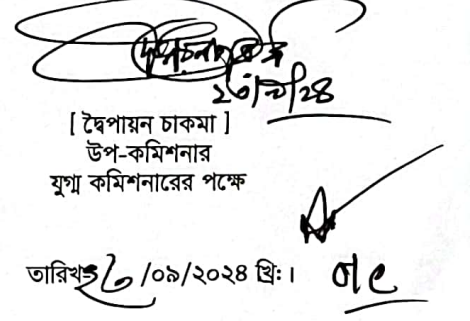 ২৩/০৯/২৪
[ দ্বৈপায়ন চাকমা ]
উপ-কমিশনার
যুগ্ম কমিশনারের পক্ষে
তারিখঃ ২৩ /০৯/২০২৪ খ্রি: ।